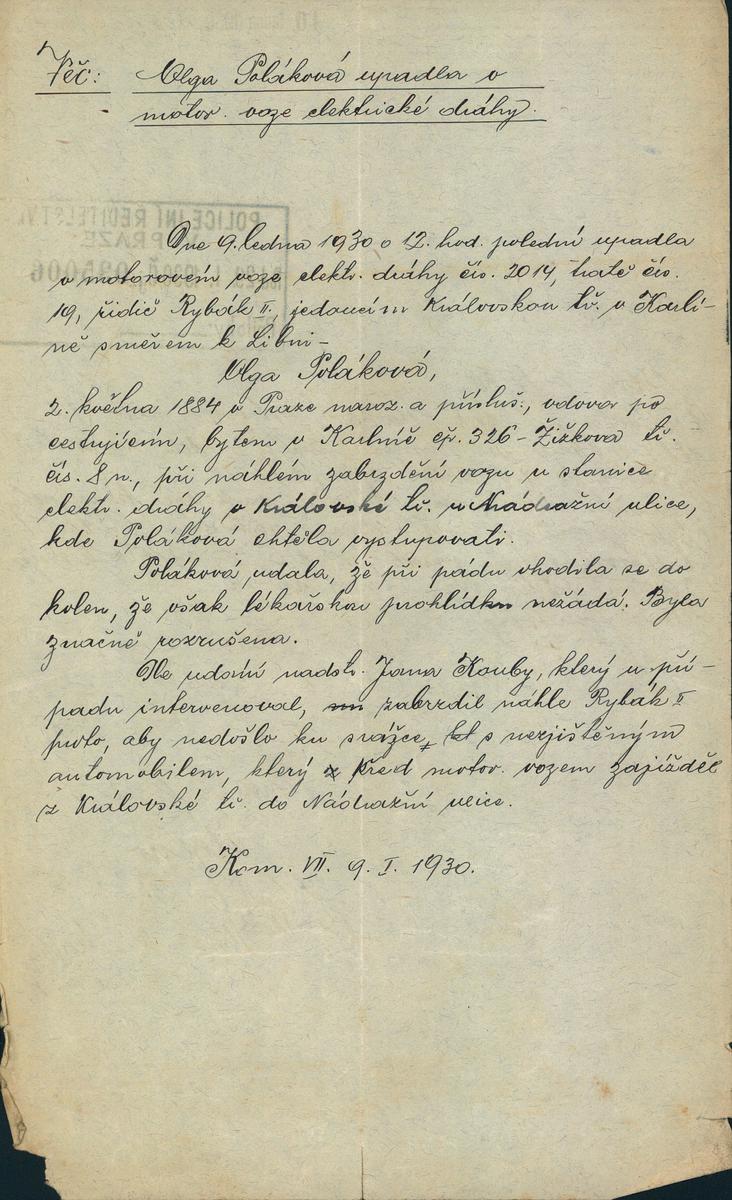 Věc: Olga Poláková upadla v
motor. voze elektrické dráhy.
Dne 9. ledna 1930 o 12. hod. polední upadla
v motorovém voze elektr. dráhy čís. 2014, tratě čís.
19, řidič Rybák II., jedoucím Královskou tř. v Karlí-
ně směrem k Libni –
Olga Poláková,
2. května 1884 v Praze naroz. a přísluš., vdova po
cestujícím, bytem v Karlíně čp. 326 – Žižkova tř.
čís. 8 n., při náhlém zabrzdění vozu u stanice
elektr. dráhy v Královské tř. u Nádražní ulice,
kde Poláková chtěla vystupovati.
Poláková udala, že při pádu uhodila se do
kolen, že však lékařskou prohlídku nežádá. Byla
značně rozrušena.
Dle udání nadstr. Jana Kouby, který u pří-
padu intervenoval, zabrzdil náhle Rybák II
proto, aby nedošlo ku srážce s nezjištěným
automobilem, který před motor. vozem zajížděl
z Královské tř. do Nádražní ulice.
Kom. VII. 9. I. 1930.
POLICEJNÍ ŘEDITELSTVÍ
PRAZE